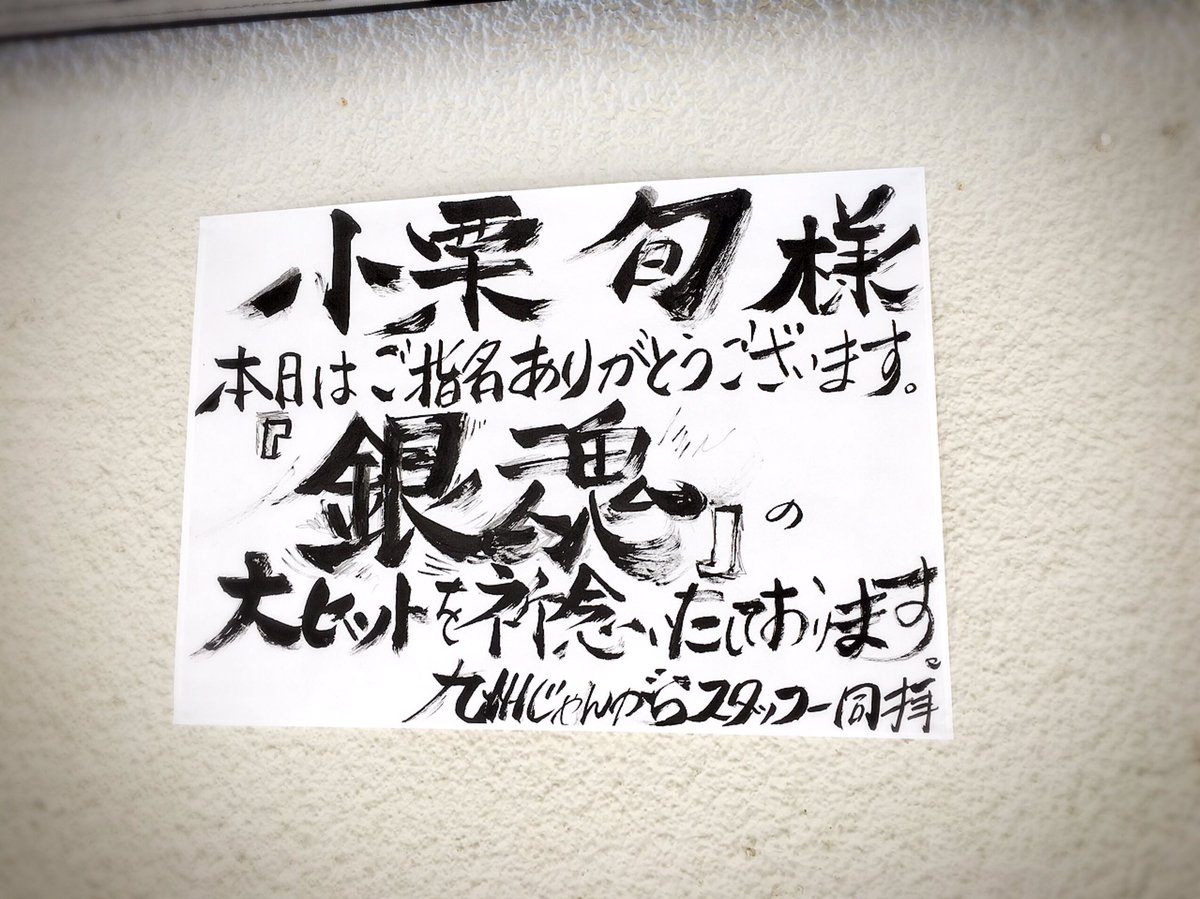 小栗 旬 様
本日はご指名ありがとうございます。
『銀魂』の
大ヒットを祈念いたしております。
九州じゃんがらスタッフ一同 拝